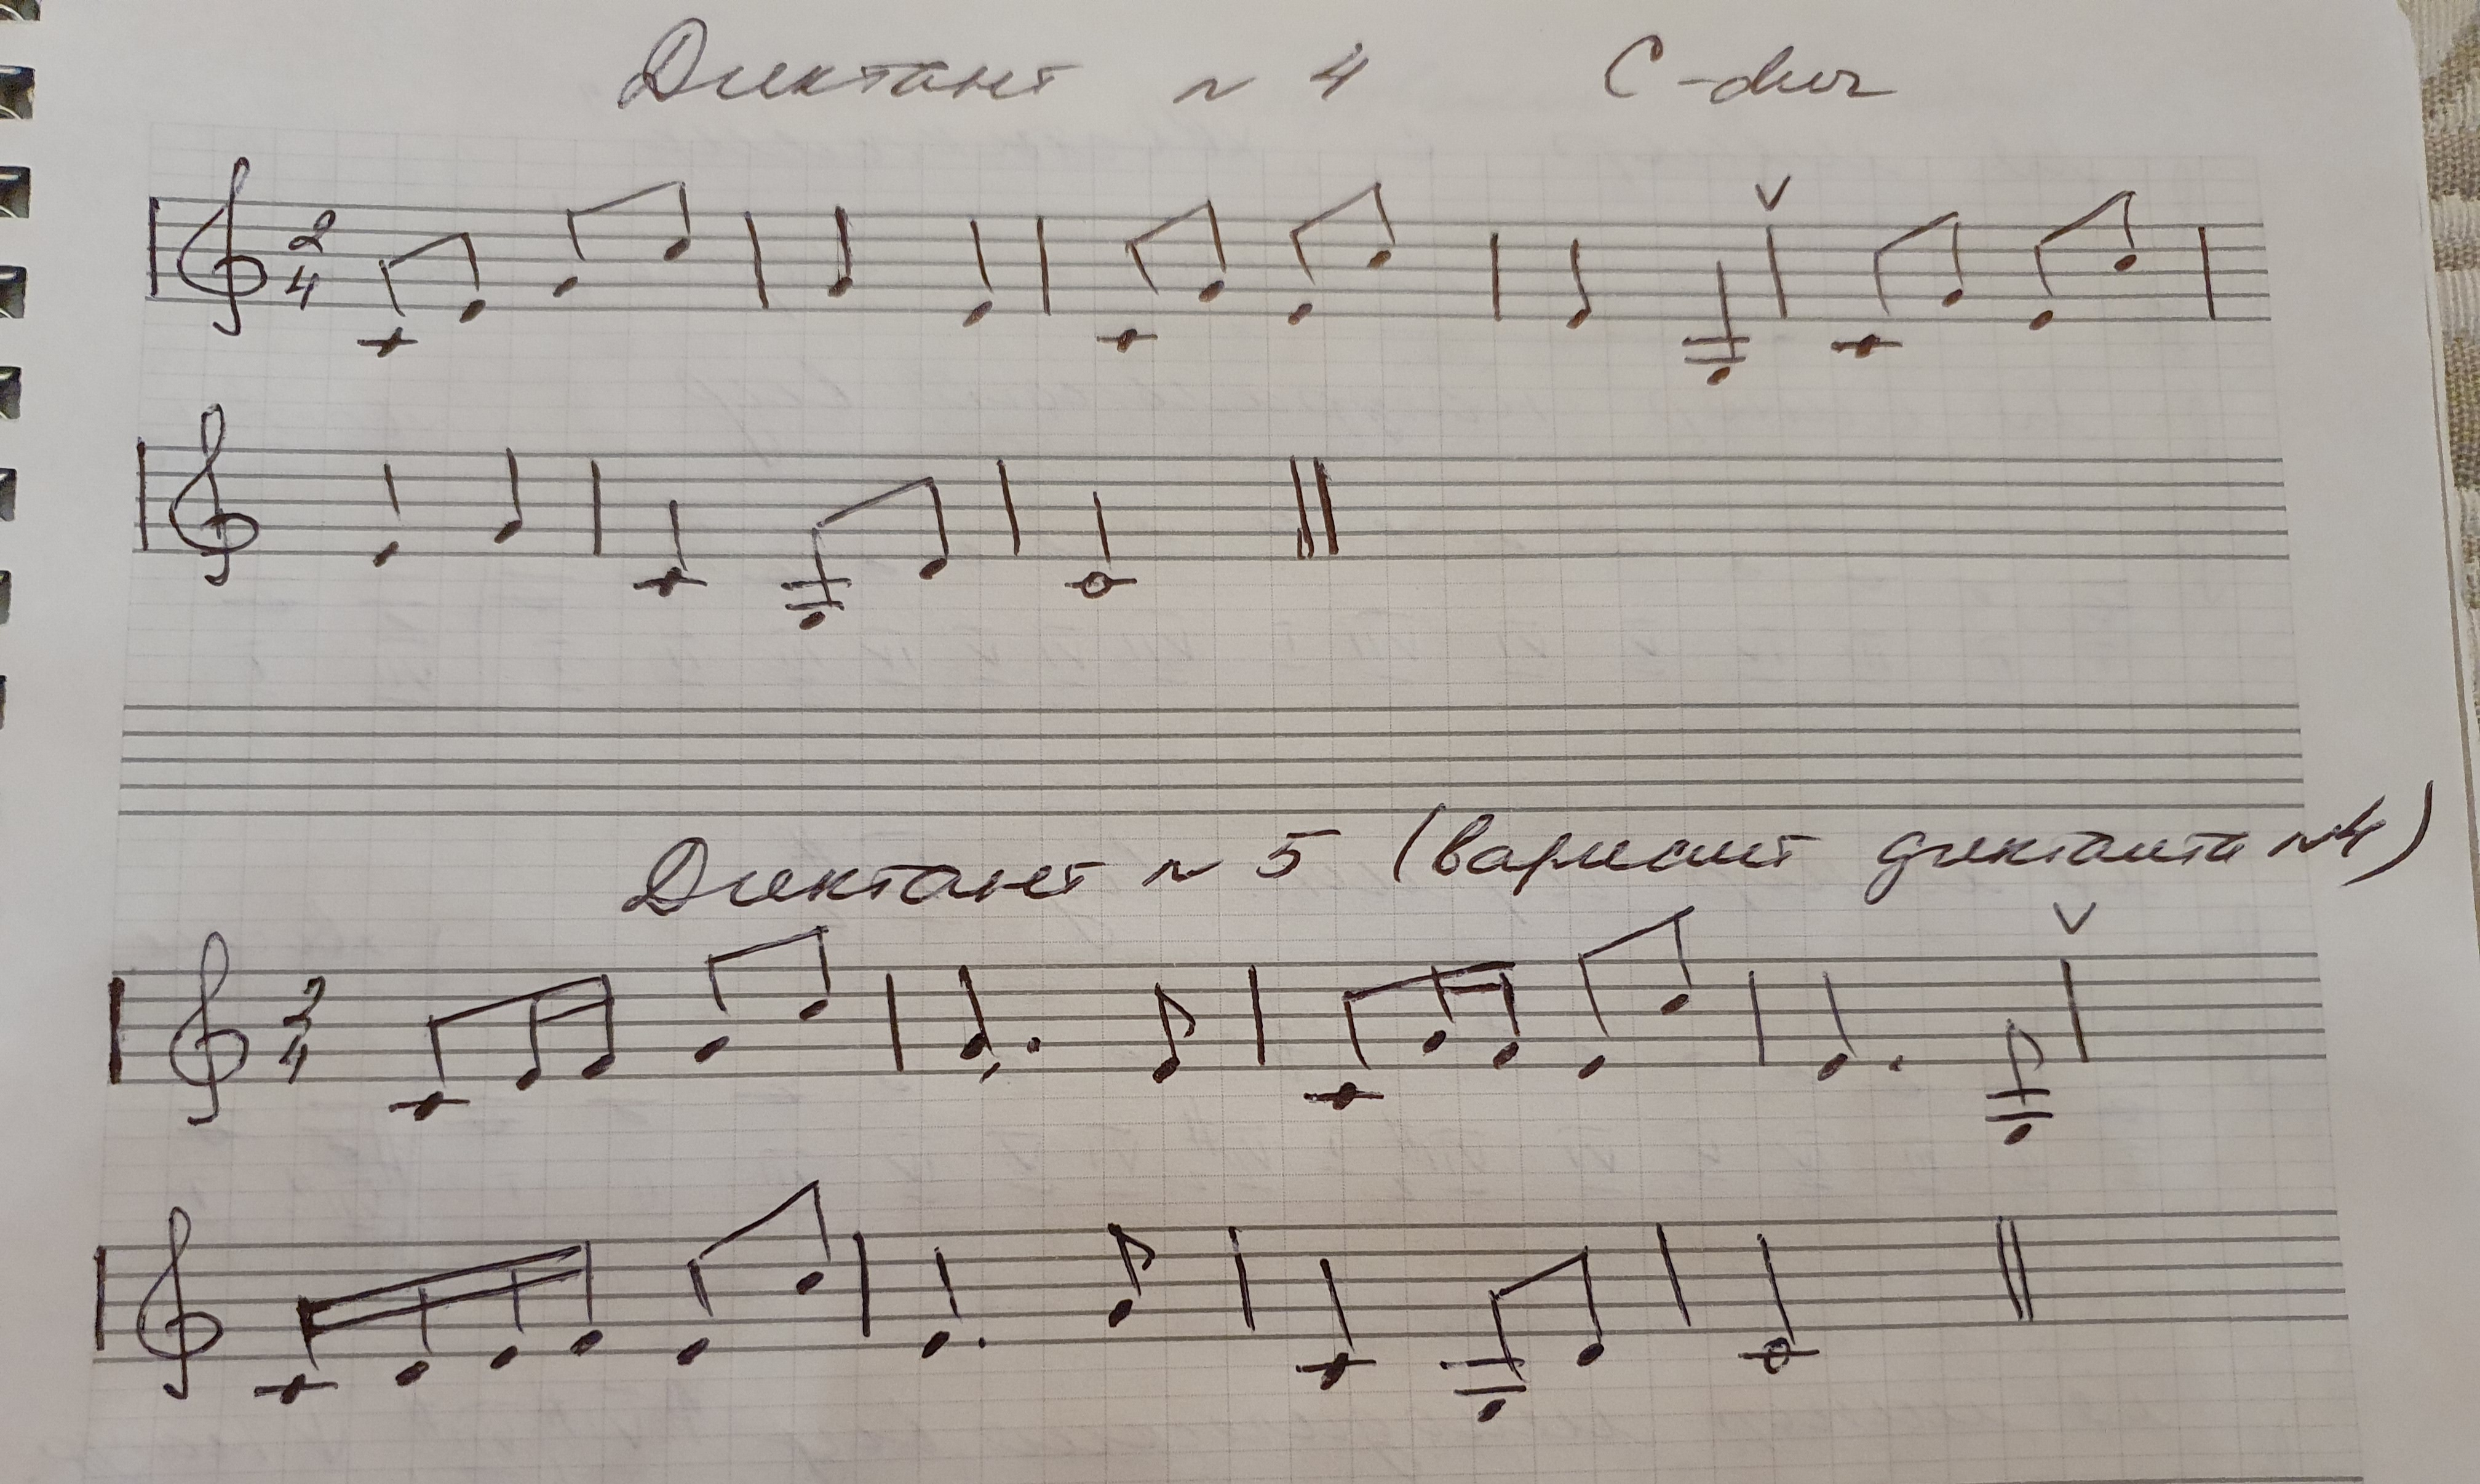 Диктант N 4 C-dur
2
4
V
Диктант N 5 (вариант диктанта N4)
V
2
4